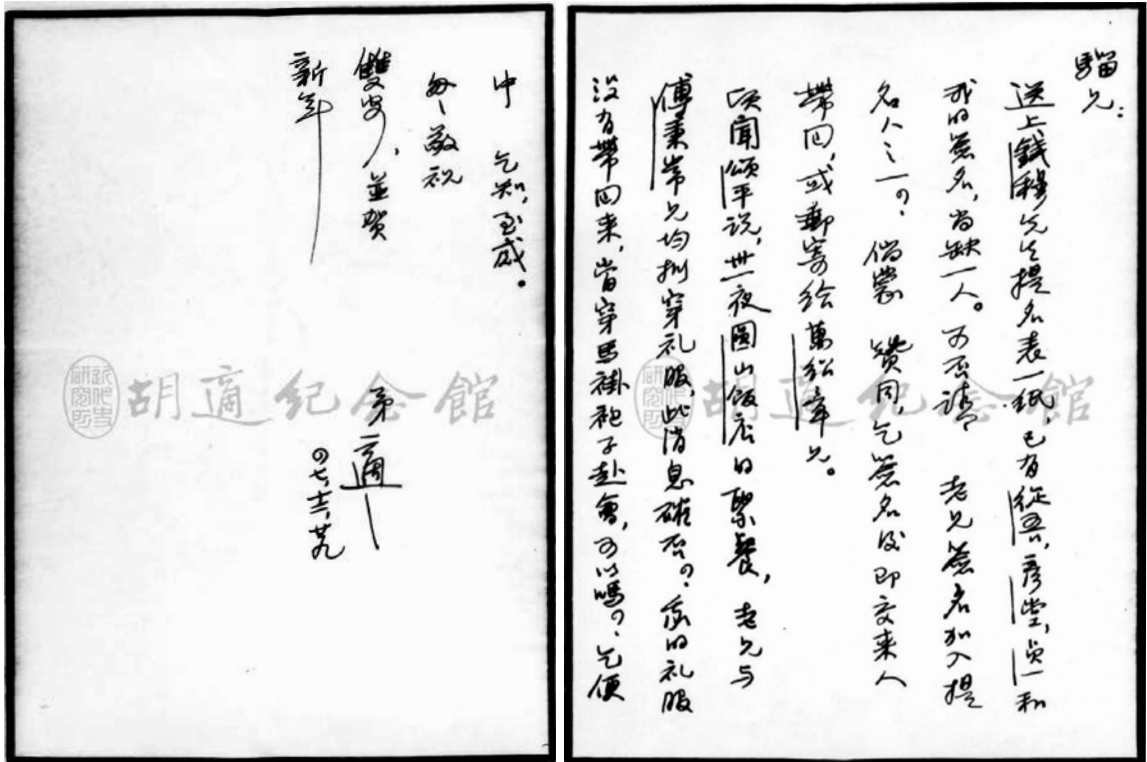 騮兄：
送上錢穆先生提名表一紙，已有從吾，彥堂，貞一和
我的簽名，尚缺一人。可否請 老兄簽名加入提
名人之一？倘蒙 贊同，乞簽名後即交來人
帶回，或郵寄給萬紹章兄。
頃聞頌平說，卅一夜圓山飯店的聚餐，老兄与
傅秉常兄均擬穿礼服，此消息確否？我的礼服
沒有帶回來，當穿馬褂袍子赴會，可以嗎？乞便
中 乞知，至感。
匆匆敬祝
雙安，並賀
新年
弟 適
四七，十二，廿九
胡適紀念館
胡適紀念館